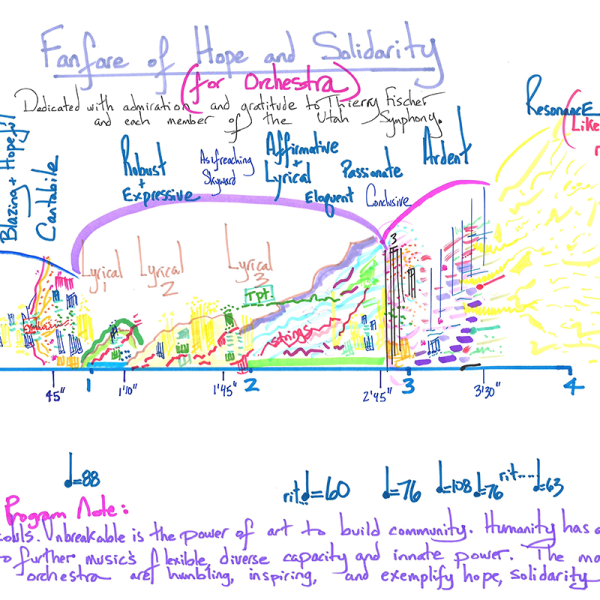 Fanfare of Hope and Solidarity
(for Orchestra)
Dedicated with admiration and gratitude to Thierry Fischer
and each member of the Utah Symphony.
Resonance
(Like
Blazing + Hopeful
Cantabile
Robust
+
Expressive
As if reaching
Skyward
Affirmative
+
Lyrical
Eloquent
Passionate
Conclusive
Ardent
Lyrical
1
Lyrical
2
Lyrical
3
Tpt.
strings
3
45"
1
1'10"
1'45"
2
2'45"
3
3'30"
4
♩=88
rit. ♩=60
♩=76
♩=108
♩=76
rit....
♩=63
Program Note:
souls. Unbreakable is the power of art to build community. Humanity has
to further music's flexible, diverse capacity and innate power. The
orchestra are humbling, inspiring, and exemplify hope, solidarity